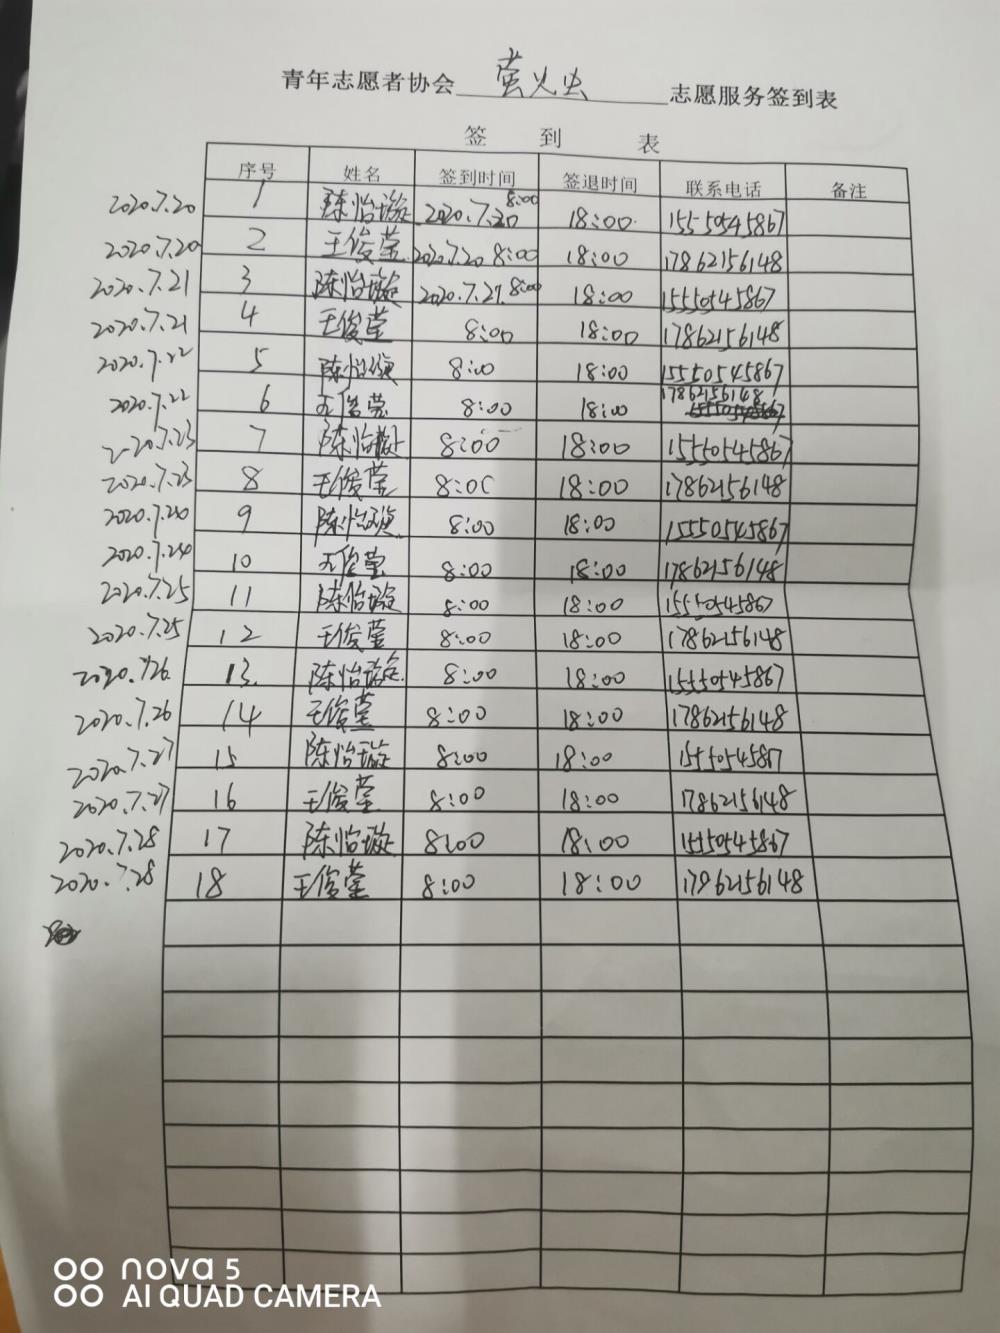 青年志愿者协会 萤火虫 志愿服务签到表
签 到 表
序号 姓名 签到时间 签退时间 联系电话 备注
2020.7.20 1 陈怡璇 2020.7.20 8:00 18:00 15550545867
2020.7.20 2 王俊莹 2020.7.20 8:00 18:00 17862156148
2020.7.21 3 陈怡璇 2020.7.21 8:00 18:00 15550545867
2020.7.21 4 王俊莹 8:00 18:00 17862156148
2020.7.22 5 陈怡璇 8:00 18:00 15550545867
2020.7.22 6 王俊莹 8:00 18:00 17862156148
2020.7.23 7 陈怡璇 8:00 18:00 15550545867
2020.7.23 8 王俊莹 8:00 18:00 17862156148
9 陈怡璇 8:00 18:00 15550545867
2020.7.24 10 王俊莹 8:00 18:00 17862156148
2020.7.25 11 陈怡璇 8:00 18:00 15550545867
2020.7.25 12 王俊莹 8:00 18:00 17862156148
2020.7.26 13. 陈怡璇 8:00 18:00 15550545867
2020.7.26 14 王俊莹 8:00 18:00 17862156148
2020.7.27 15 陈怡璇 8:00 18:00 1555054587
2020.7.27 16 王俊莹 8:00 18:00 17862156148
2020.7.28 17 陈怡璇 8:00 18:00 15550545867
2020.7.28 18 王俊莹 8:00 18:00 17962156148
nova 5
AI QUAD CAMERA